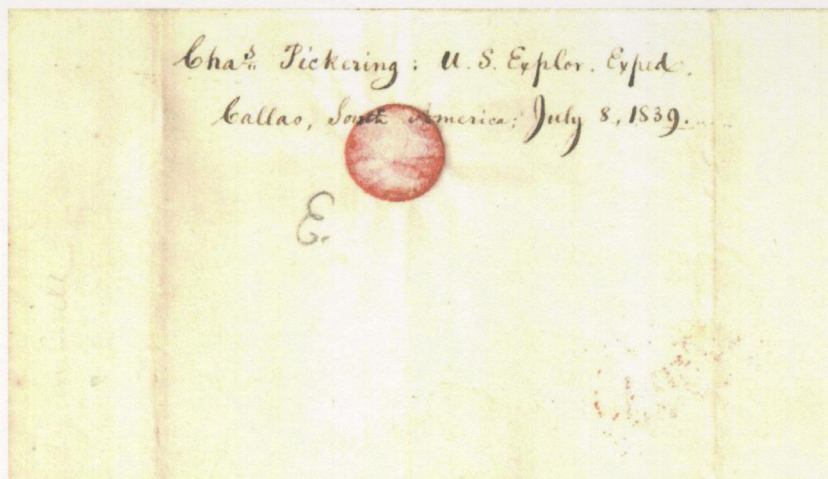 Chas. Pickering: U.S. Explor. Exped.
Callao, South America; July 8, 1839.
E.